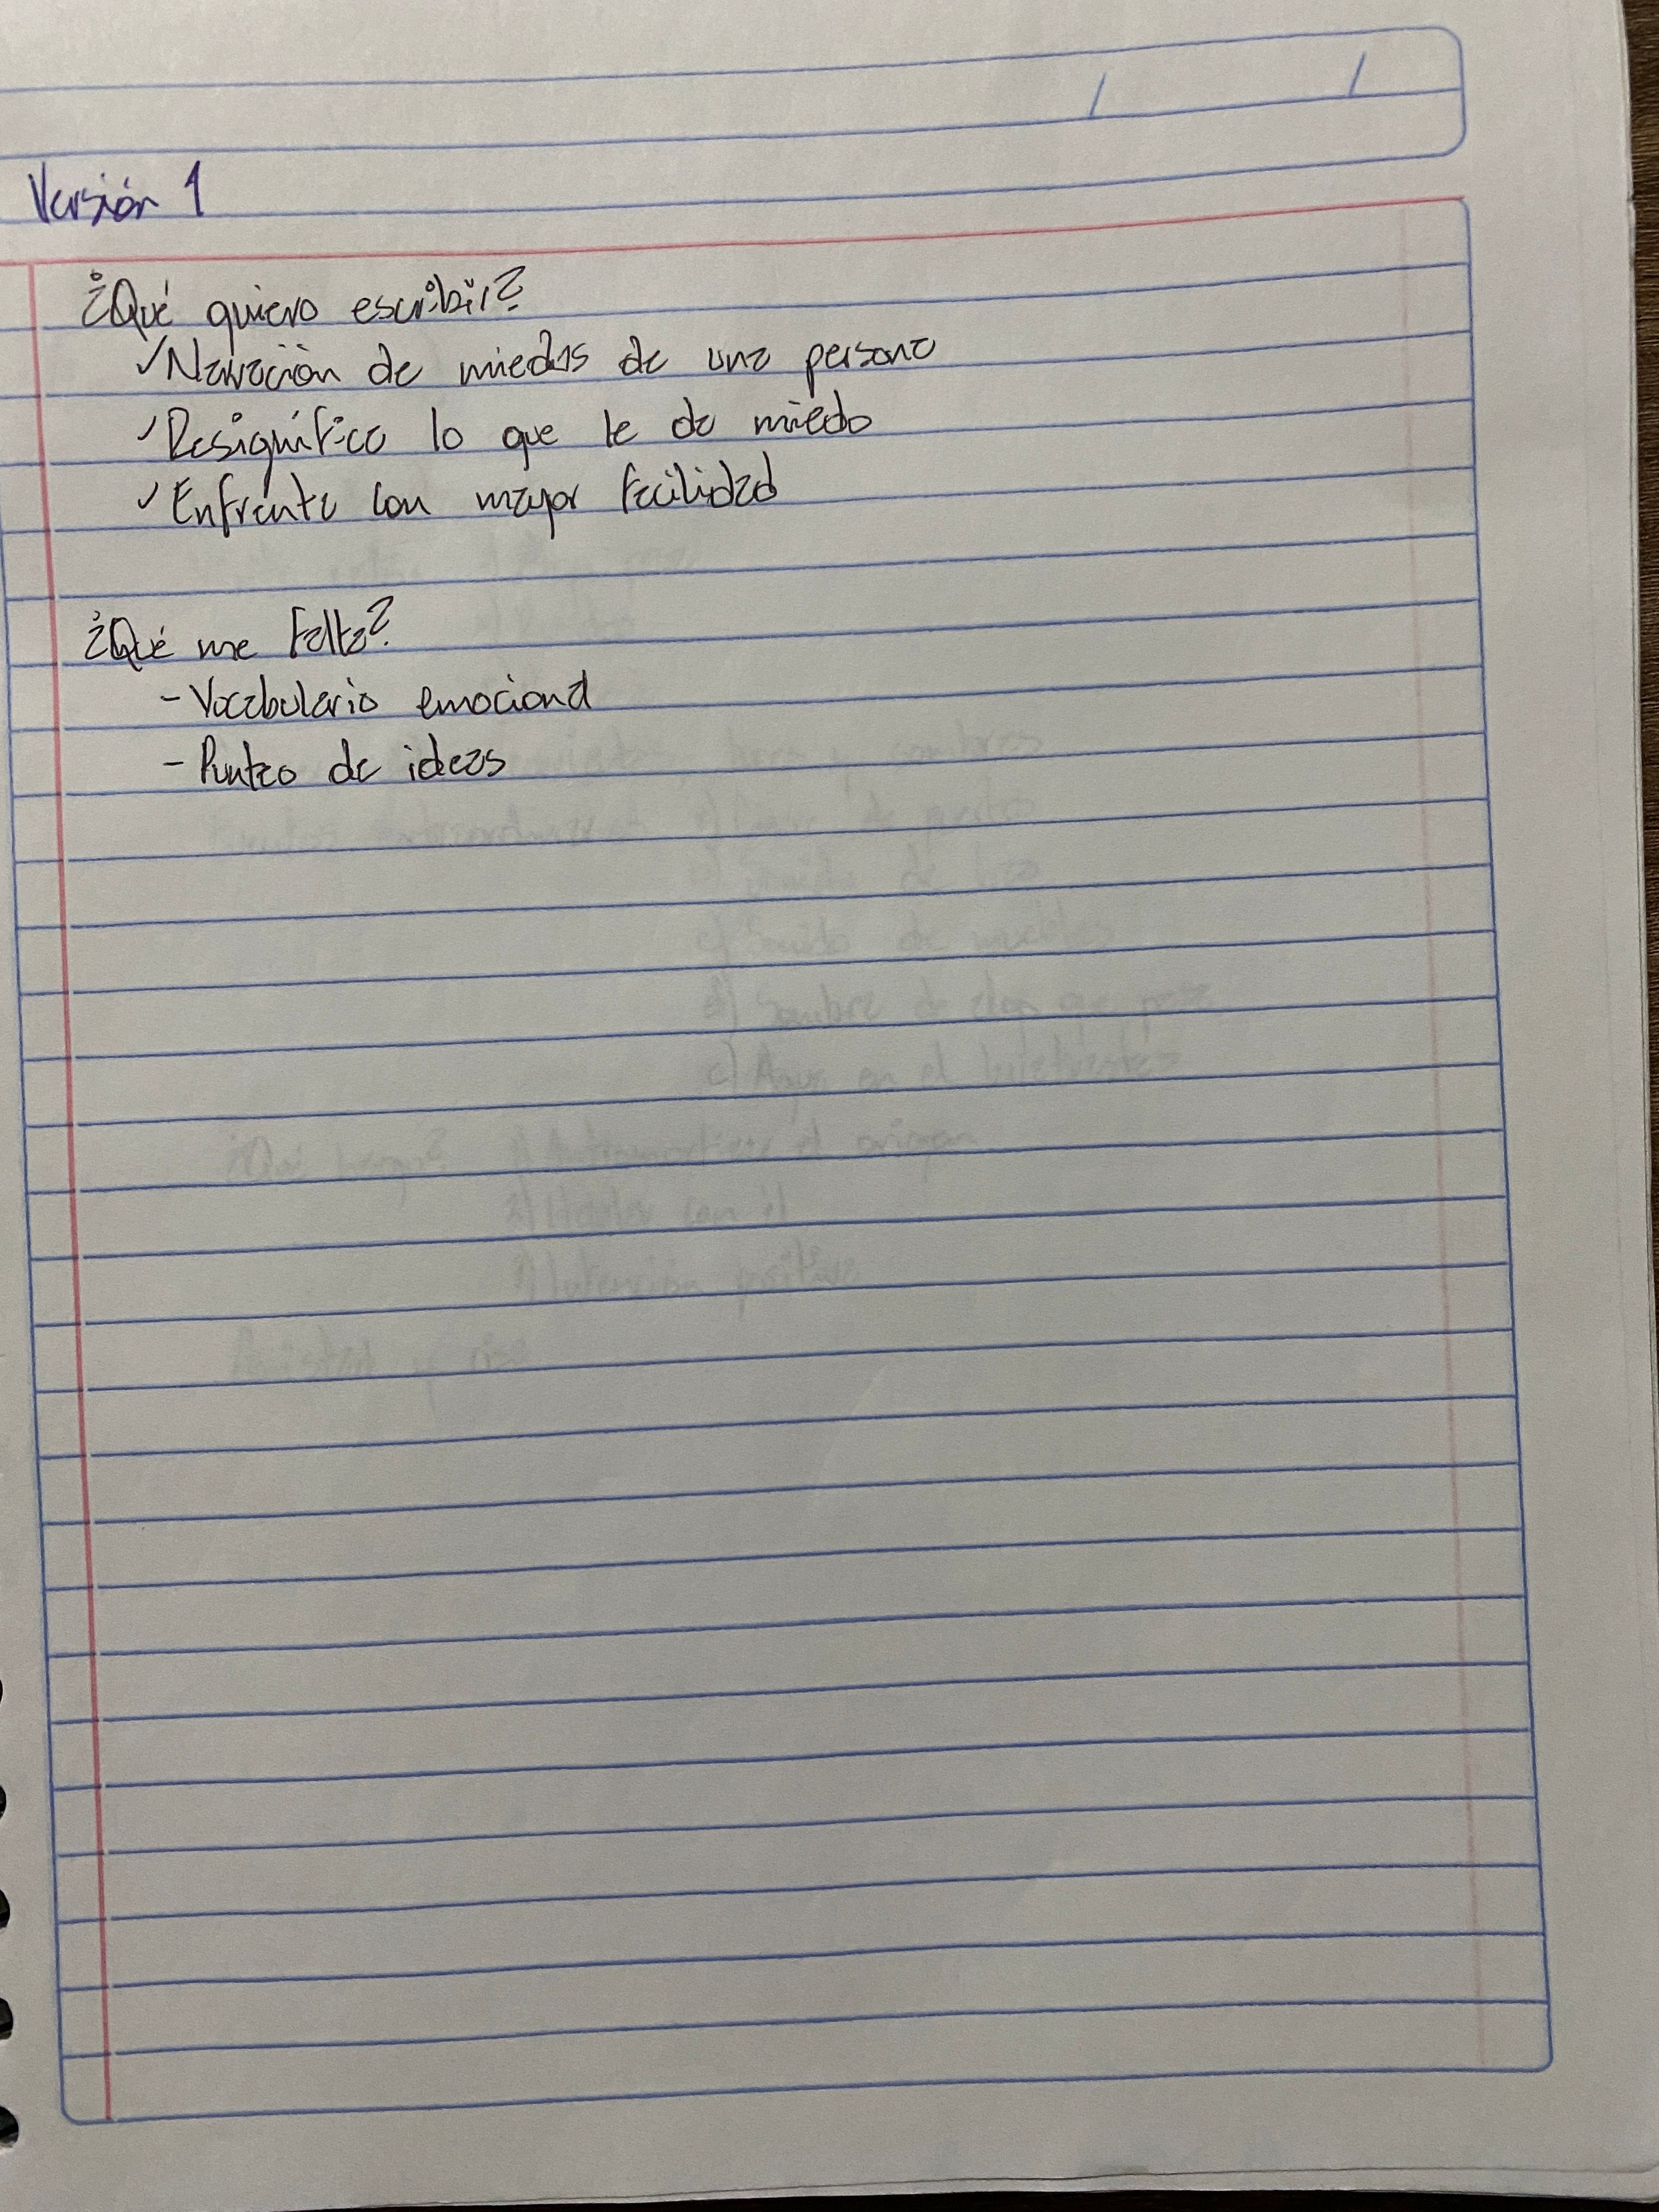 Versión 1
¿Qué quiero escribir?
✓Narración de miedos de una persona
✓Resignifico lo que le da miedo
✓Enfrente con mayor facilidad
¿Qué me falta?
-Vocabulario emocional
-Punteo de ideas